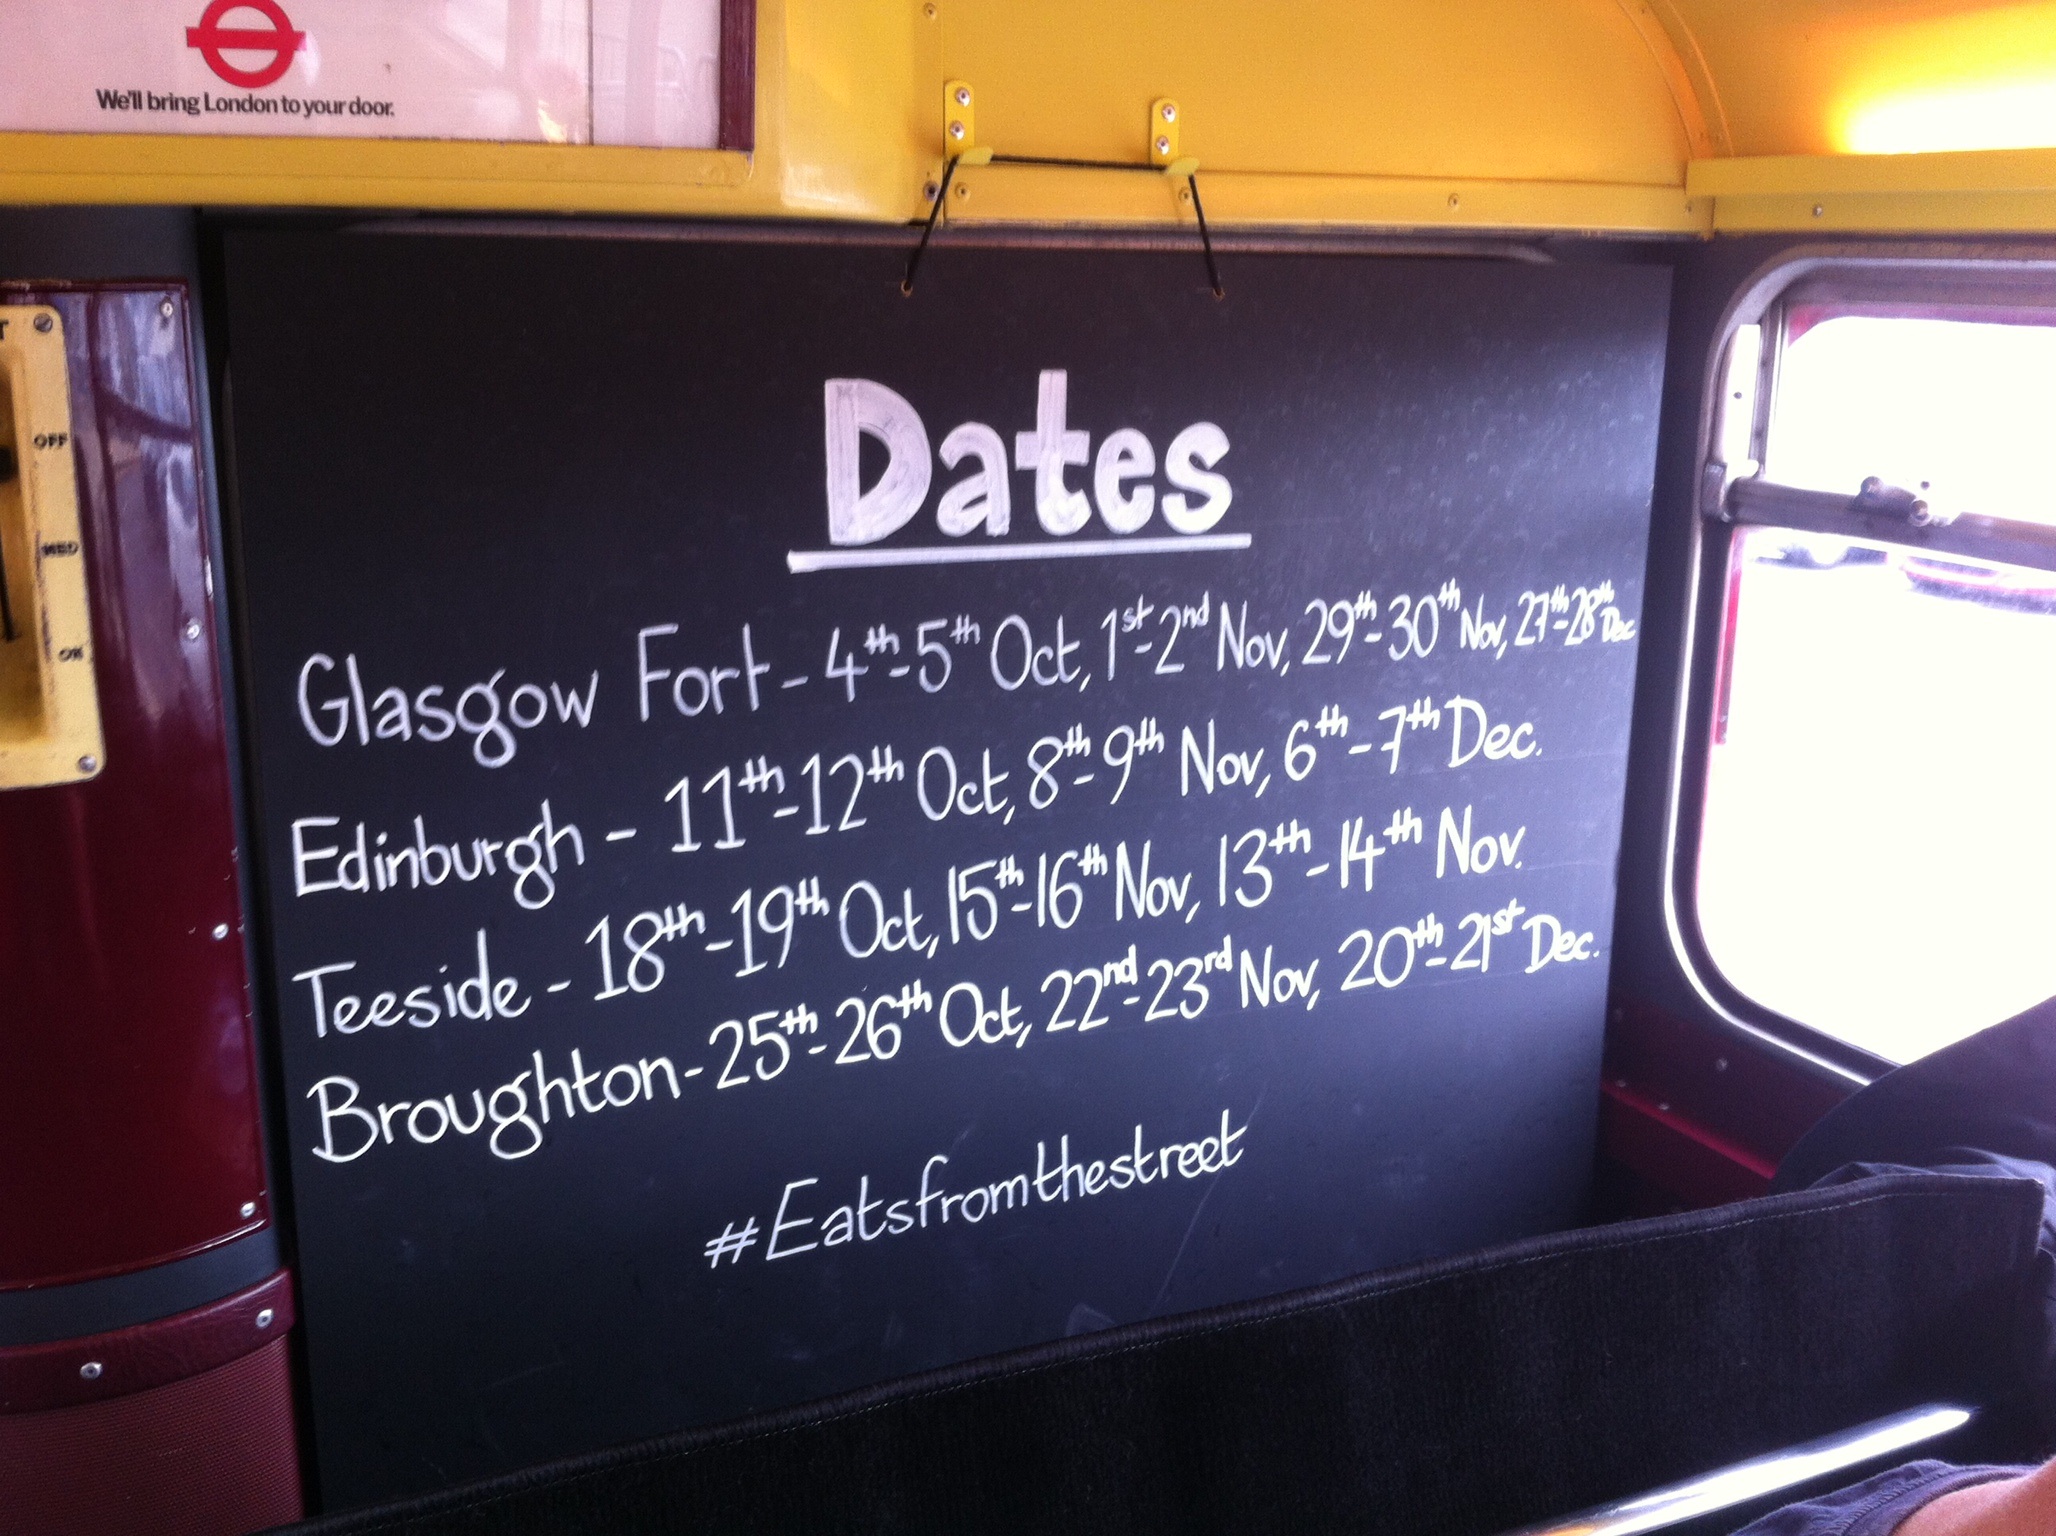 We'll bring London to your door.
OFF
MED
ON
Dates
Glasgow Fort - 4th-5th Oct, 1st-2nd Nov, 29th-30th Nov, 27th-28th Dec
Edinburgh - 11th-12th Oct, 8th-9th Nov, 6th-7th Dec.
Teeside - 18th-19th Oct, 15th-16th Nov, 13th-14th Nov.
Broughton - 25th-26th Oct, 22nd-23rd Nov, 20th-21st Dec.
#Eatsfromthestreet